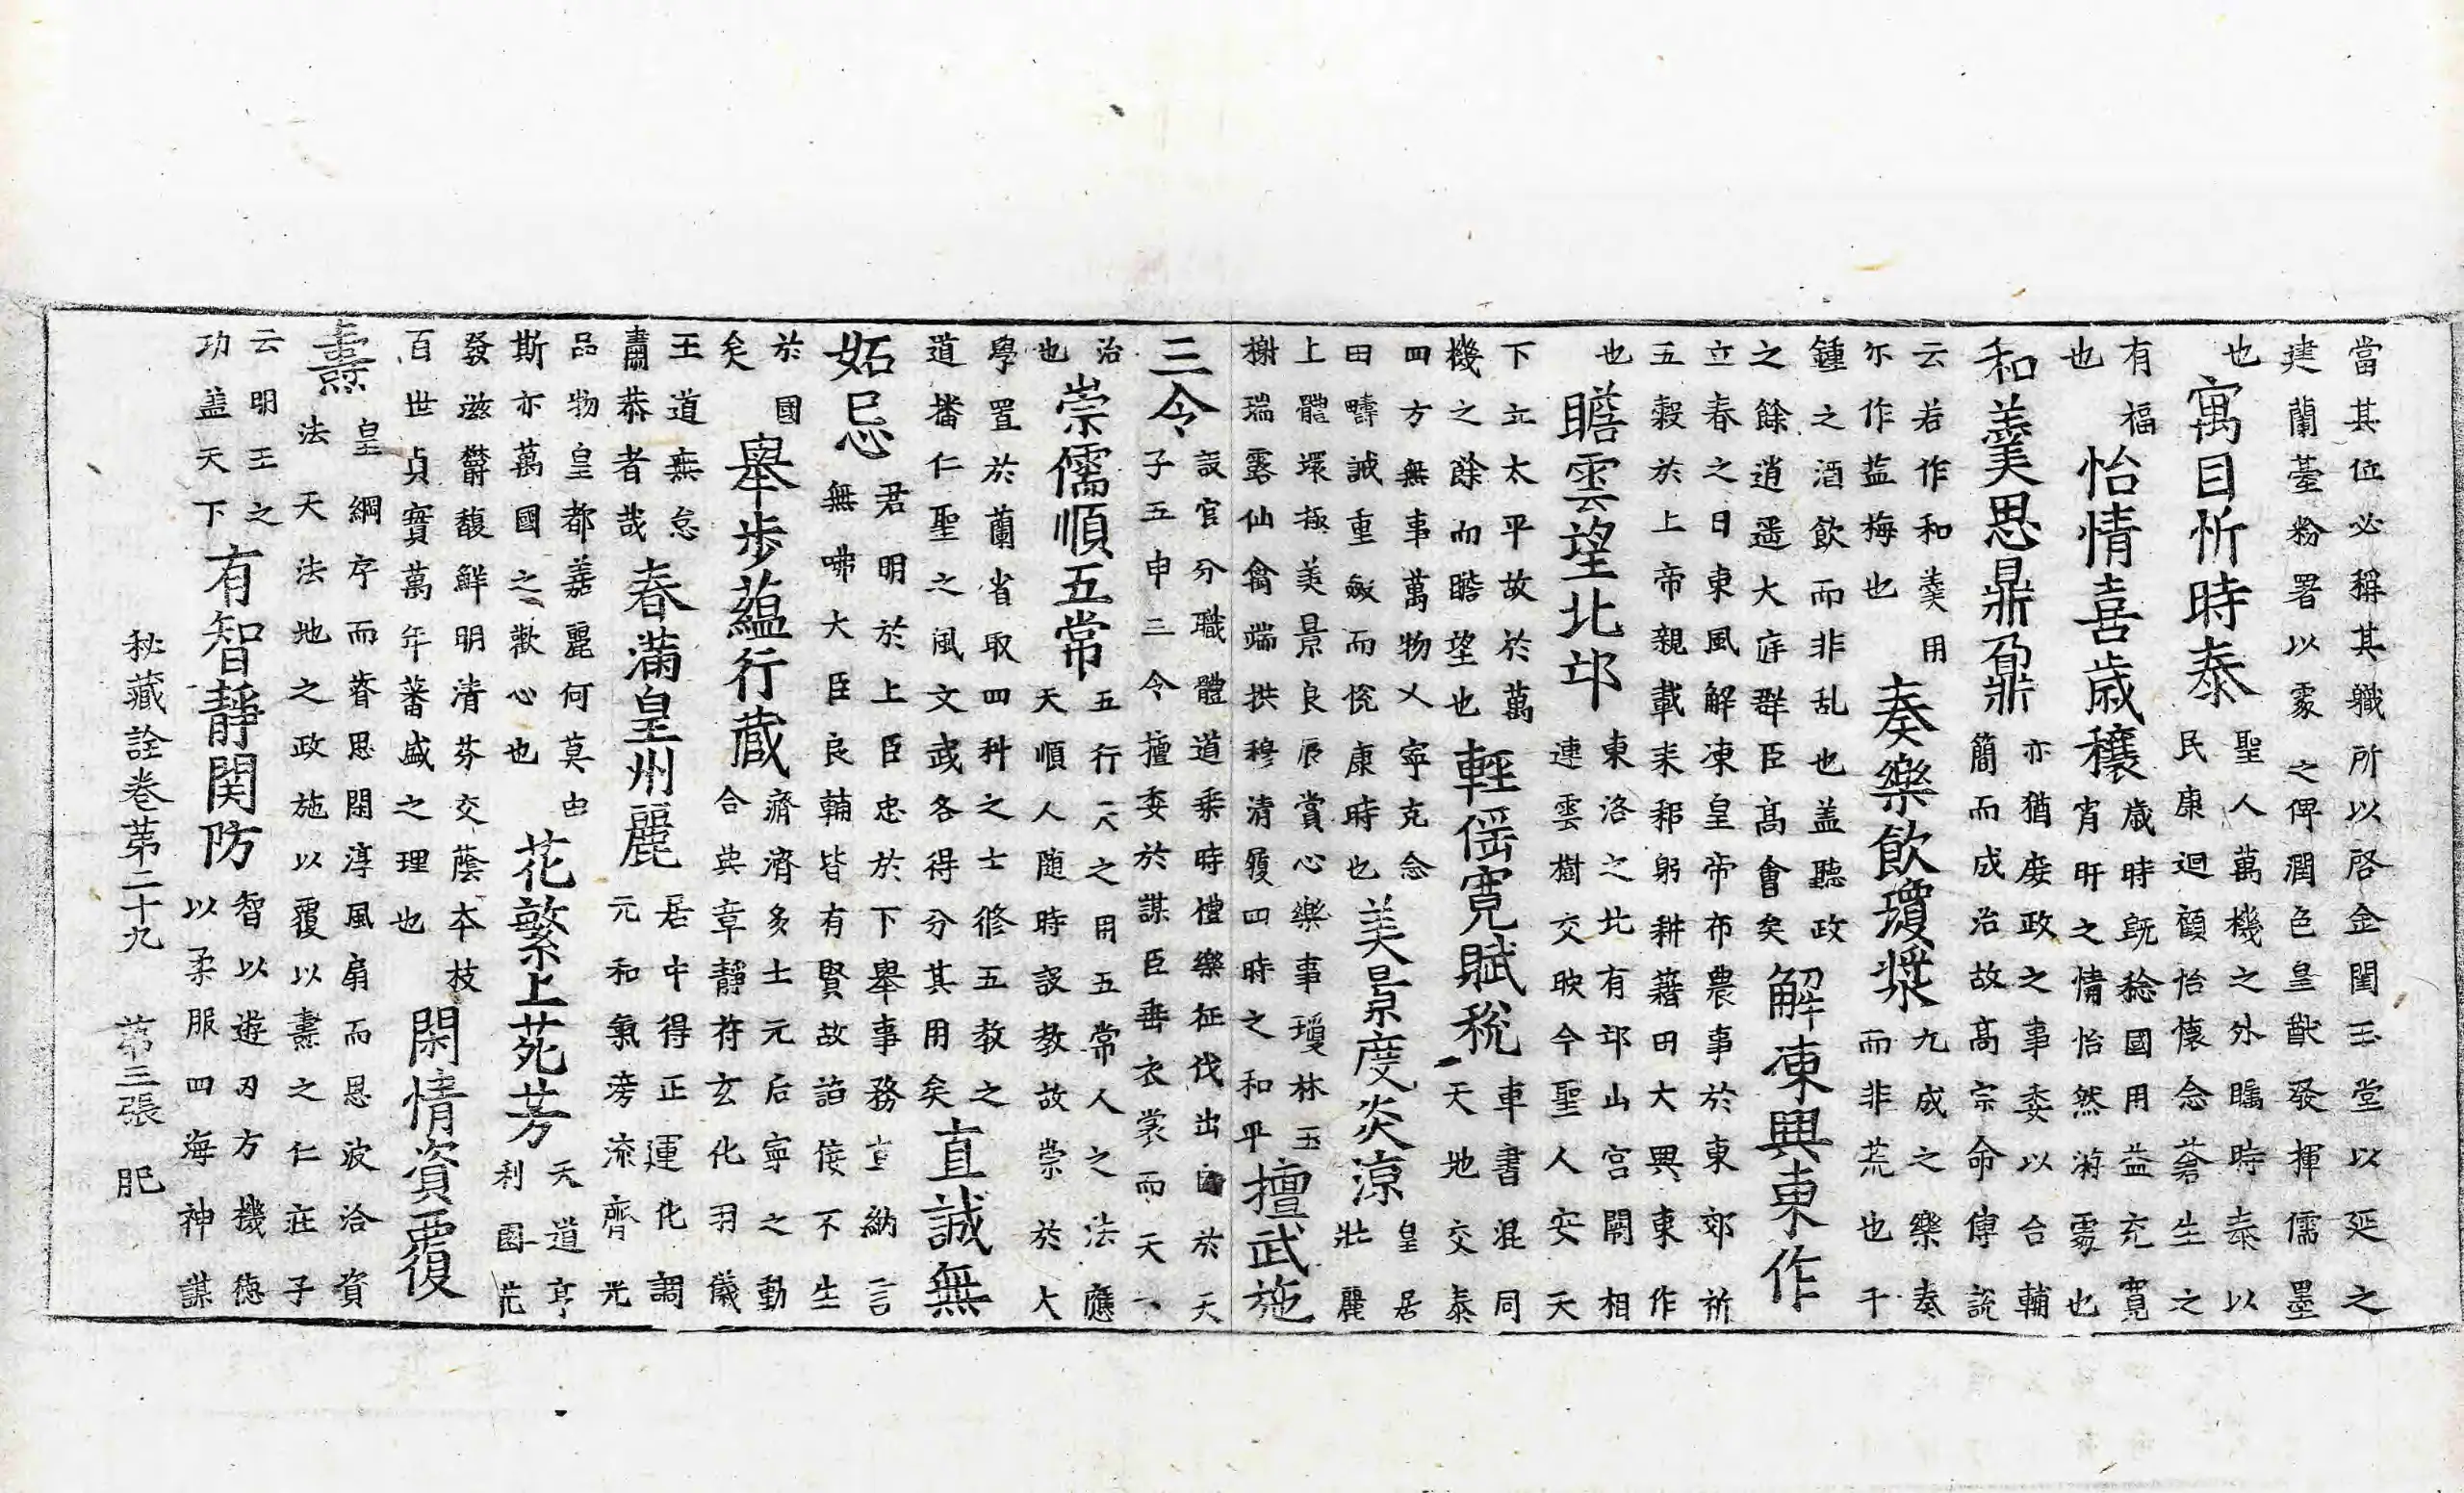 當其位必稱其職所以啓金閨玉堂以延之
建蘭臺粉署以處之俾潤色皇猷發揮儒墨
也
寓目忻時泰
聖人萬機之外矚時泰以
民康迴顧怡懷念蒼生之
有福
也
怡情喜歲穰
歲時旣稔國用益充寬
宵旰之情怡然游豫也
和羹思鼎鼐
亦猶庶政之事委以台輔
簡而成治故高宗命傅說
云若作和羹用
尒作盐梅也
奏樂飲瓊漿
九成之樂奏
而非荒也千
鍾之酒飲而非乱也盖聽政
之餘逍遥大庭群臣高會矣
解凍興東作
立春之日東風解凍皇帝布農事於東郊祈
五穀於上帝親載耒耜躬耕藉田大興東作
也
瞻雲望北邙
東洛之北有邙山宮闕相
連雲樹交映今聖人安天
下立太平故於萬
機之餘而瞻望也
輕徭寬賦稅
車書混同
天地交泰
四方無事萬物乂寧克念
田疇誡重斂而恱康時也
美景度炎涼
皇居
壯麗
上體環極美景良辰賞心樂事瓊林玉
榭瑞露仙禽端拱穆清履四時之和平
擅武施
三令
設官分職體道乘時禮樂征伐出自於天
子五申三令擅委於謀臣垂衣裳而天下
治
也
崇儒順五常
五行天之用五常人之法應
天順人随時設教故崇於大
學置於蘭省取四科之士修五教之
道播仁聖之風文武各得分其用矣
直誠無
妬忌
君明於上臣忠於下舉事務宣納言
無咈大臣良輔皆有賢故諂佞不生
於國
矣
舉步蘊行藏
濟濟多士元后寧之動
合典章靜符玄化羽儀
王道無怠
肅恭者哉
春滿皇州麗
居中得正運化調
元和氣旁流齊光
品物皇都嘉麗何莫由
斯亦萬國之歡心也
花繁上苑芳
天道亨
利園苑
發滋欝馥鮮明清芬交蔭本枝
百世貞實萬年蕃盛之理也
閑情資覆
燾
皇綱序而睿思閑淳風扇而恩波洽資
法天法地之政施以覆以燾之仁莊子
云明王之
功盖天下
有智靜関防
智以遊刃方機德
以柔服四海神謀
秘藏詮卷苐二十九 苐三張 肥